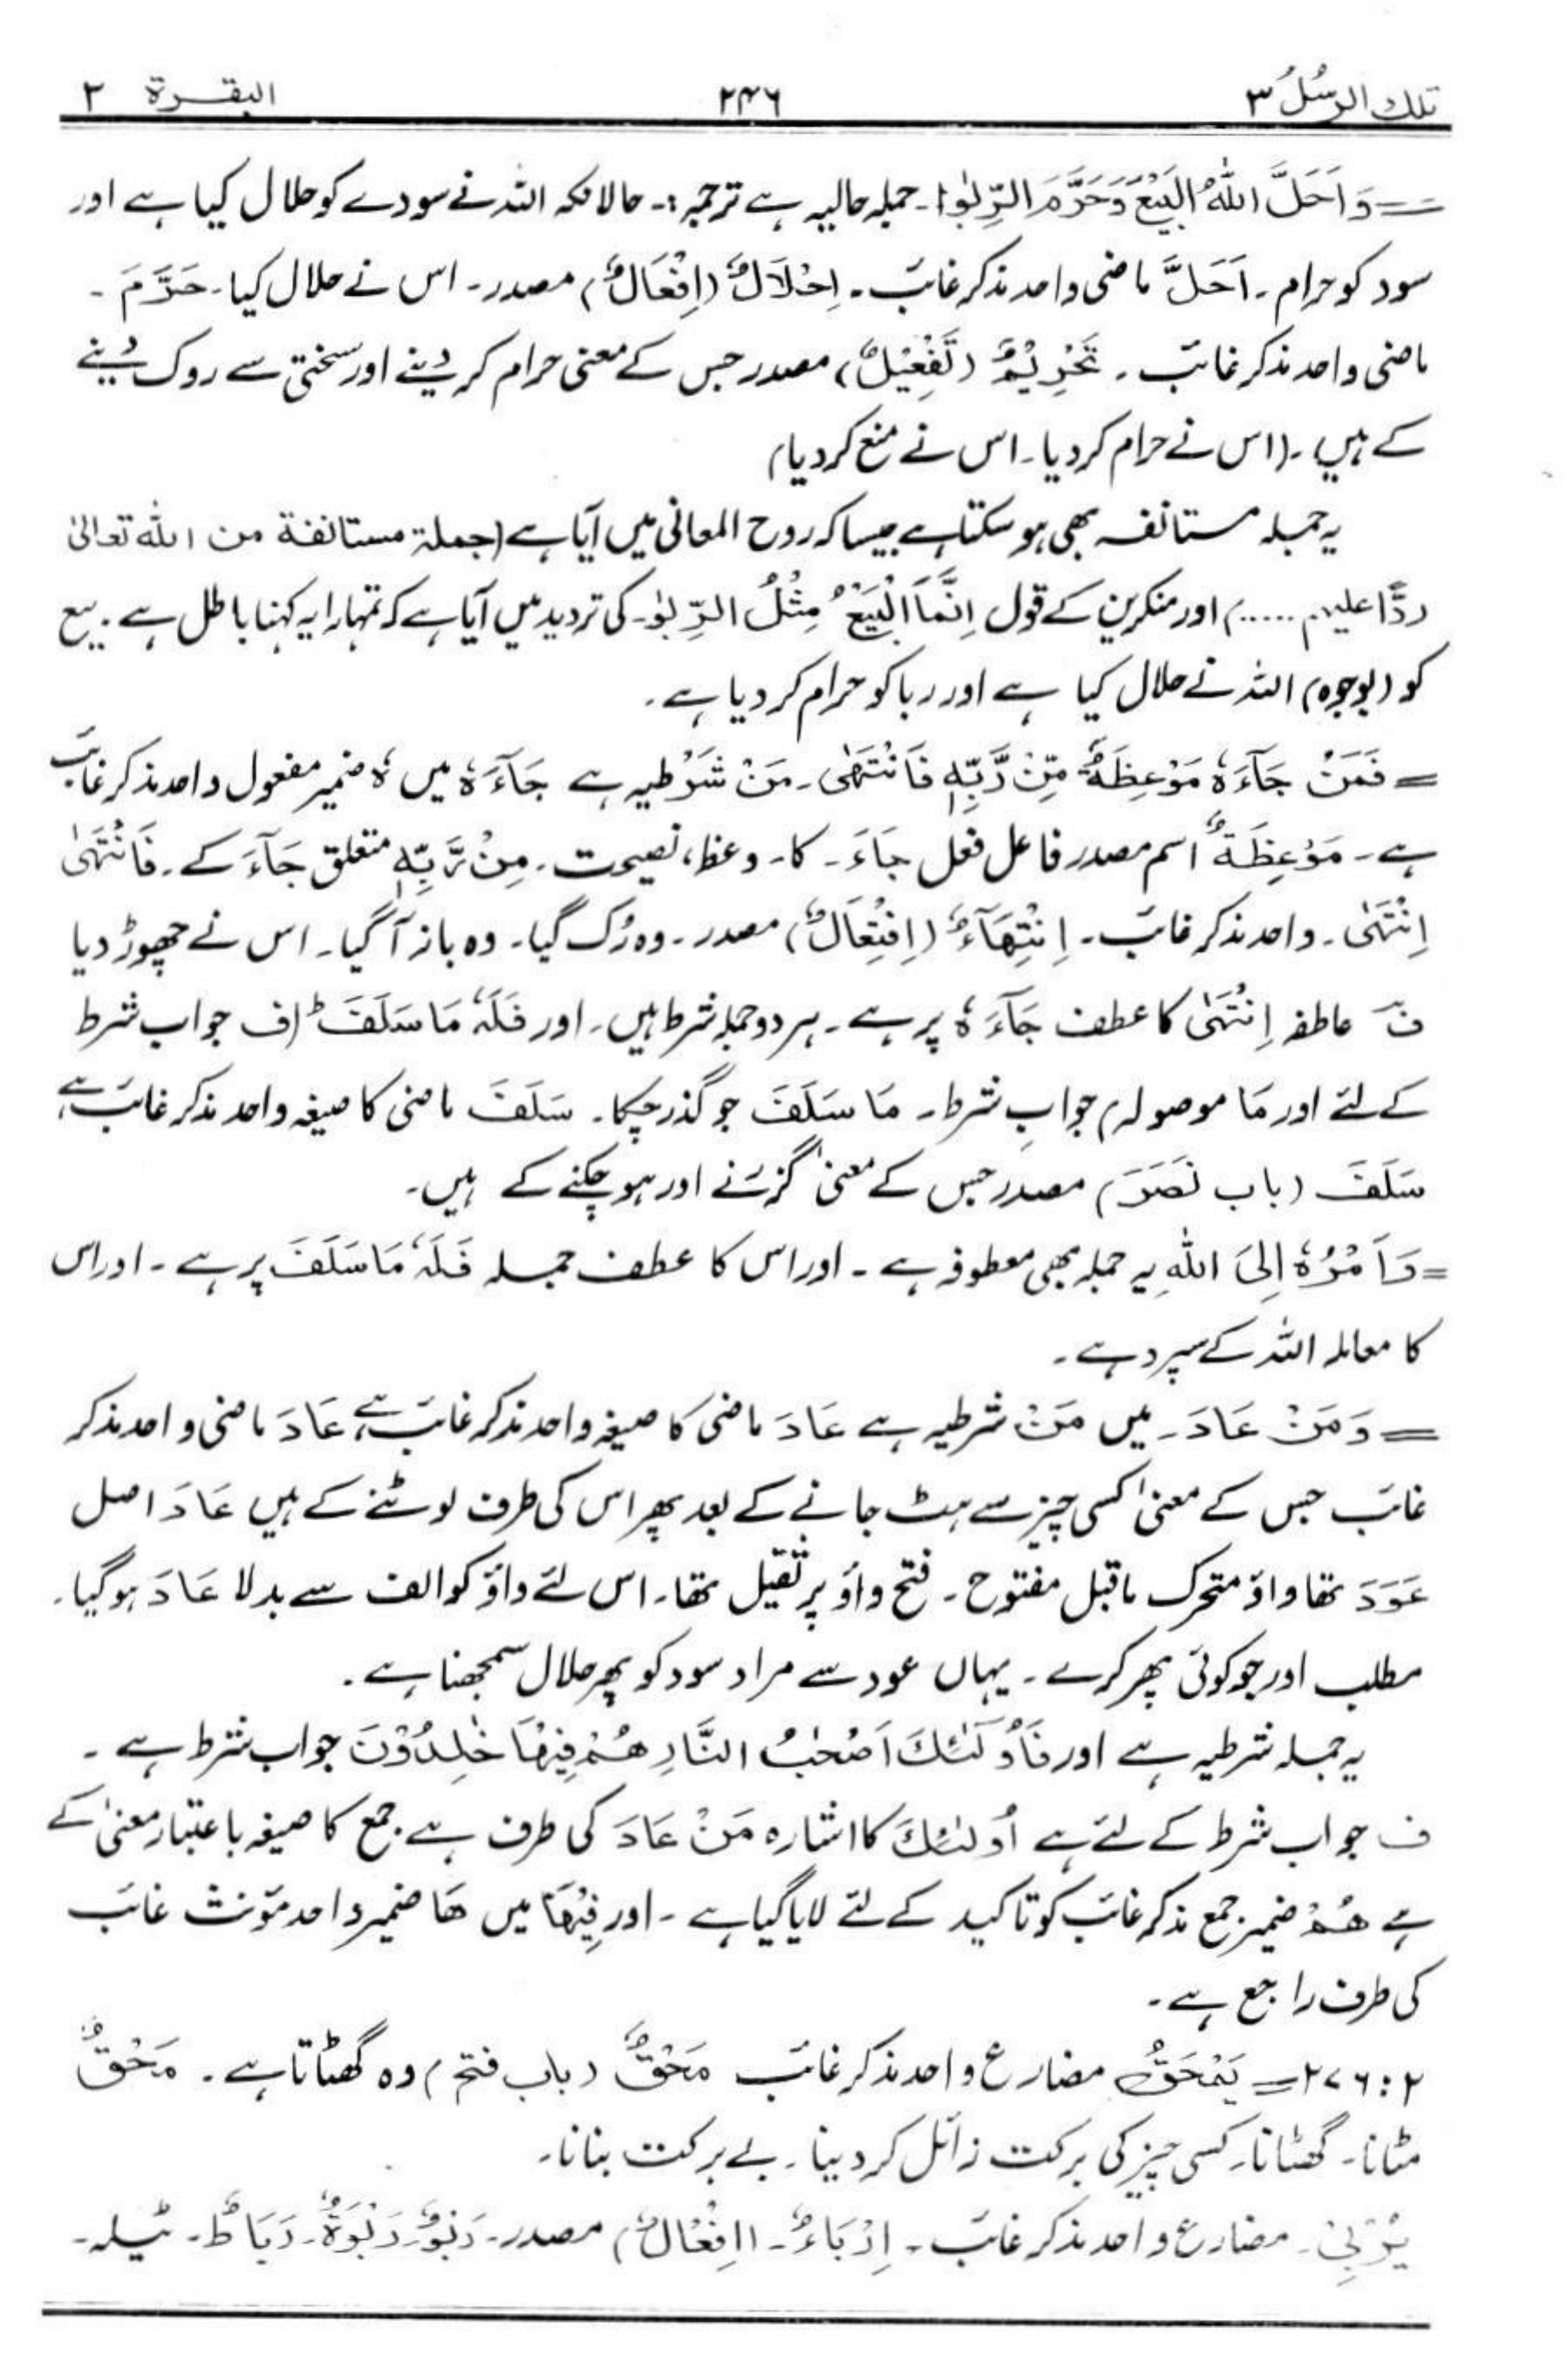 تلك الرسُلُ ٣ ٢٣٦ البقــرة ٢
= وَاَحَلَّ اللّٰهُ الْبَيْعَ وَحَرَّمَ الرِّبٰوا۔ جملہ حالیہ ہے ترجمہ :۔ حالانکہ اللہ نے سودے کو حلال کیا ہے اور
سود کو حرام۔ اَحَلَّ ماضی واحد مذکر غائب۔ اِحْلَالٌ (اِفْعَالٌ) مصدر۔ اس نے حلال کیا۔ حَرَّمَ ۔
ماضی واحد مذکر غائب۔ تَحْرِيْمٌ (تَفْعِيْلٌ) مصدر جس کے معنی حرام کر دینے اور سختی سے روک دینے
کے ہیں۔ (اس نے حرام کر دیا۔ اس نے منع کر دیا)
یہ جملہ مستانفہ بھی ہو سکتا ہے جیسا کہ روح المعانی میں آیا ہے (جملة مستانفة من الله تعالىٰ
ردًّا عليهم .....) اور منکرین کے قول اِنَّمَا الْبَيْعُ مِثْلُ الرِّبٰوا۔ کی تردید میں آیا ہے کہ تمہارا یہ کہنا باطل ہے۔ بیع
کو (بوجوہ) اللہ نے حلال کیا ہے اور ربا کو حرام کر دیا ہے۔
= فَمَنْ جَآءَهٗ مَوْعِظَةٌ مِّنْ رَّبِّهٖ فَانْتَهٰى۔ مَنْ شَرْطیہ ہے جَآءَهٗ میں هٗ ضمیر مفعول واحد مذکر غائب
ہے۔ مَوْعِظَةٌ اسم مصدر فاعل فعل جَاءَ۔ کا۔ وعظ، نصیحت۔ مِنْ رَّبِّهٖ متعلق جَآءَ کے۔ فَانْتَهٰى
اِنْتَهٰى۔ واحد مذکر غائب۔ اِنْتِهَآءٌ (اِفْتِعَالٌ) مصدر۔ وہ رُک گیا۔ وہ باز آ گیا۔ اس نے چھوڑ دیا
فَ عاطفہ اِنْتَهٰى کا عطف جَآءَهٗ پر ہے۔ ہر دو جملہ شرط ہیں۔ اور فَلَهٗ مَا سَلَفَ ط (ف جواب شرط
کے لئے اور مَا موصولہ) جوابِ شرط۔ مَا سَلَفَ جو گذر چکا۔ سَلَفَ ماضی کا صیغہ واحد مذکر غائب ہے،
سَلَفَ (باب نَصَرَ) مصدر جس کے معنیٰ گزرنے اور ہو چکنے کے ہیں۔
= وَاَمْرُهٗ اِلَى اللهِ یہ جملہ بھی معطوفہ ہے۔ اور اس کا عطف جملہ فَلَهٗ مَا سَلَفَ پر ہے۔ اور اس
کا معاملہ اللہ کے سپرد ہے۔
= وَمَنْ عَادَ۔ میں مَنْ شرطیہ ہے عَادَ ماضی کا صیغہ واحد مذکر غائب ہے، عَادَ ماضی واحد مذکر
غائب جس کے معنیٰ کسی چیز سے ہٹ جانے کے بعد پھر اس کی طرف لوٹنے کے ہیں عَادَ اصل
عَوَدَ تھا واؤ متحرک ماقبل مفتوح۔ فتح واؤ پر ثقیل تھا۔ اس لئے واؤ کو الف سے بدلا عَادَ ہو گیا۔
مطلب اور جو کوئی پھر کرے۔ یہاں عود سے مراد سود کو پھر حلال سمجھنا ہے۔
یہ جملہ شرطیہ ہے اور فَاُولٰٓئِكَ اَصْحٰبُ النَّارِ هُمْ فِيْهَا خٰلِدُوْنَ جواب شرط ہے۔
ف جواب شرط کے لئے ہے اُولٰٓئِكَ کا اشارہ مَنْ عَادَ کی طرف ہے جمع کا صیغہ باعتبار معنیٰ کے
ہے هُمْ ضمیر جمع مذکر غائب کو تاکید کے لئے لایا گیا ہے۔ اور فِيْهَا میں هَا ضمیر واحد مؤنث غائب
کی طرف راجع ہے۔
٢:٢٧٦ = يَمْحَقُ مضارع واحد مذکر غائب مَحْقٌ (باب فتح) وہ گھٹاتا ہے۔ مَحْقٌ
مٹانا۔ گھٹانا۔ کسی چیز کی برکت زائل کر دینا۔ بے برکت بنانا۔
يُرْبِيْ۔ مضارع واحد مذکر غائب۔ اِرْبَاءٌ۔ (اِفْعَالٌ) مصدر۔ رَبْوٌ۔ رَبْوَةٌ۔ رَبَاطٌ۔ ٹیلہ۔